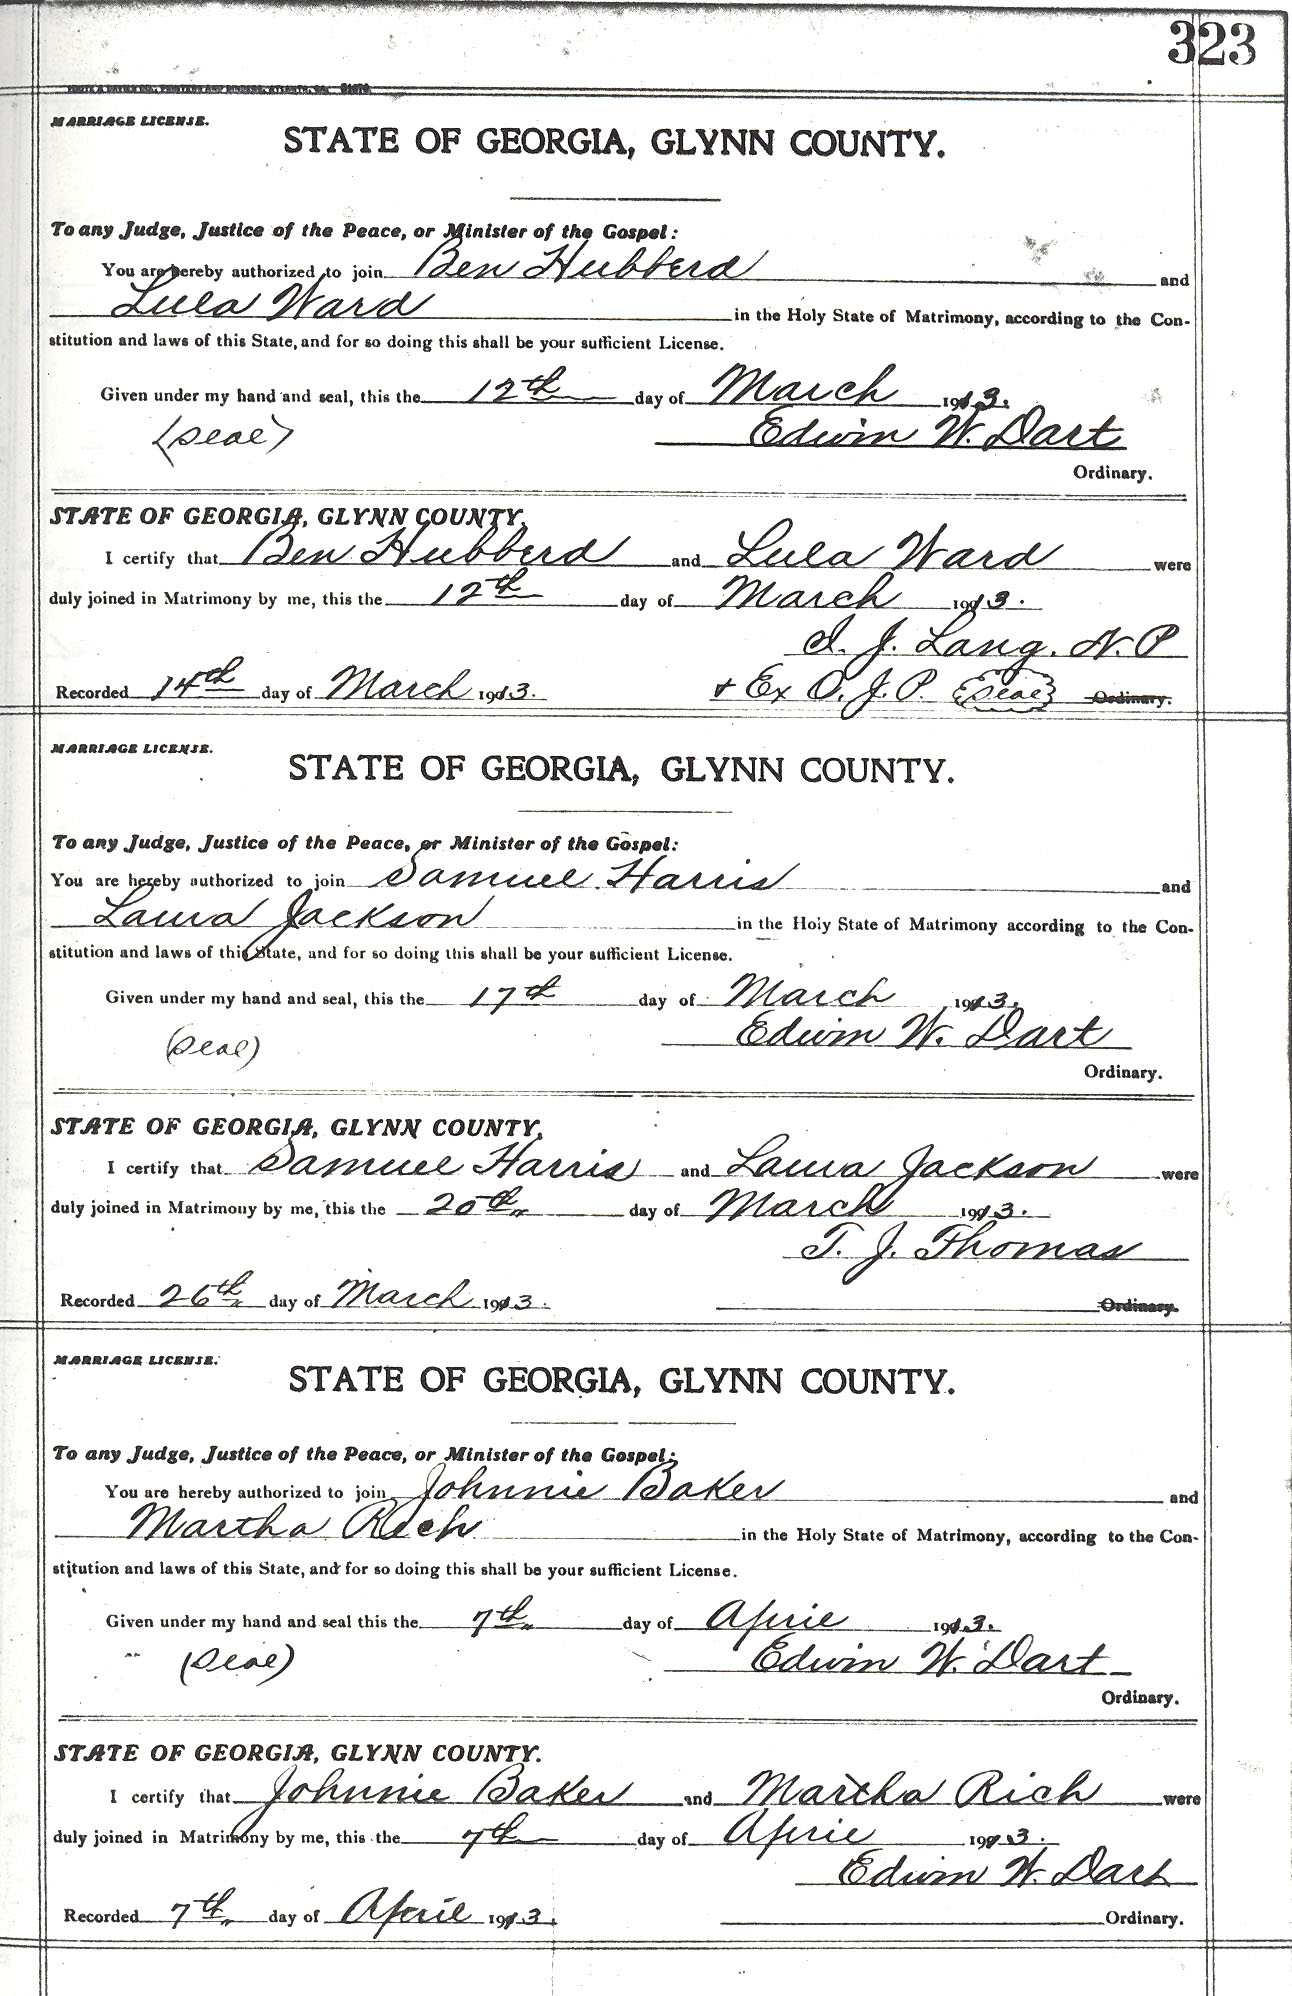 323
MARRIAGE LICENSE.
STATE OF GEORGIA, GLYNN COUNTY.
To any Judge, Justice of the Peace, or Minister of the Gospel:
You are hereby authorized to join Ben Hubberd and
Lula Ward in the Holy State of Matrimony, according to the Con-
stitution and laws of this State, and for so doing this shall be your sufficient License.
Given under my hand and seal, this the 12th day of March 1913.
(Seal) Edwin W. Dart
Ordinary.
STATE OF GEORGIA, GLYNN COUNTY.
I certify that Ben Hubberd and Lula Ward were
duly joined in Matrimony by me, this the 12th day of March 1913.
J. Lang. N. P
Recorded 14th day of March 1913. & Ex O. J. P. (Seal) Ordinary.
MARRIAGE LICENSE.
STATE OF GEORGIA, GLYNN COUNTY.
To any Judge, Justice of the Peace, or Minister of the Gospel:
You are hereby authorized to join Samuel Harris and
Laura Jackson in the Holy State of Matrimony according to the Con-
stitution and laws of this State, and for so doing this shall be your sufficient License.
Given under my hand and seal, this the 17th day of March 1913.
(Seal) Edwin W. Dart
Ordinary.
STATE OF GEORGIA, GLYNN COUNTY.
I certify that Samuel Harris and Laura Jackson were
duly joined in Matrimony by me, this the 20th day of March 1913.
T. J. Thomas
Recorded 26th day of March 1913. Ordinary.
MARRIAGE LICENSE.
STATE OF GEORGIA, GLYNN COUNTY.
To any Judge, Justice of the Peace, or Minister of the Gospel:
You are hereby authorized to join Johnnie Baker and
Martha Rich in the Holy State of Matrimony, according to the Con-
stitution and laws of this State, and for so doing this shall be your sufficient License.
Given under my hand and seal this the 7th day of April 1913.
(Seal) Edwin W. Dart
Ordinary.
STATE OF GEORGIA, GLYNN COUNTY.
I certify that Johnnie Baker and Martha Rich were
duly joined in Matrimony by me, this the 7th day of April 1913.
Edwin W. Dart
Recorded 7th day of April 1913. Ordinary.